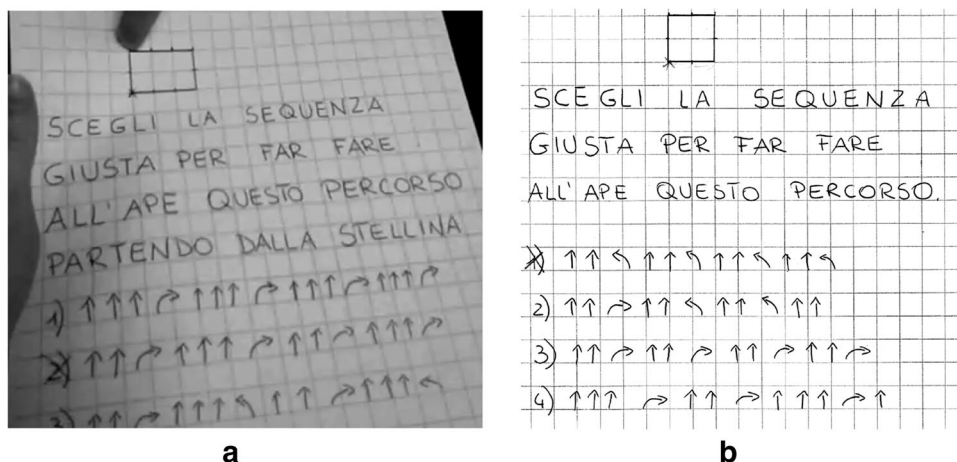 SCEGLI LA SEQUENZA
GIUSTA PER FAR FARE
ALL'APE QUESTO PERCORSO
PARTENDO DALLA STELLINA
1) ↑↑↑↱↑↑↑↱↑↑↑↱↑↑↑↱
2) ↑↑↱↑↑↑↱↑↑↱↑↑↑↱
3) ↑↑↱↑↑↑↰↑↑↱↑↑↑↰
a
SCEGLI LA SEQUENZA
GIUSTA PER FAR FARE
ALL'APE QUESTO PERCORSO.
1) ↑↑↰↑↑↰↑↑↰↑↑↰
2) ↑↑↱↑↑↰↑↑↰↑↑
3) ↑↑↱↑↑↱↑↑↱↑↑↱
4) ↑↑↑↱↑↑↱↑↑↑↱↑
b